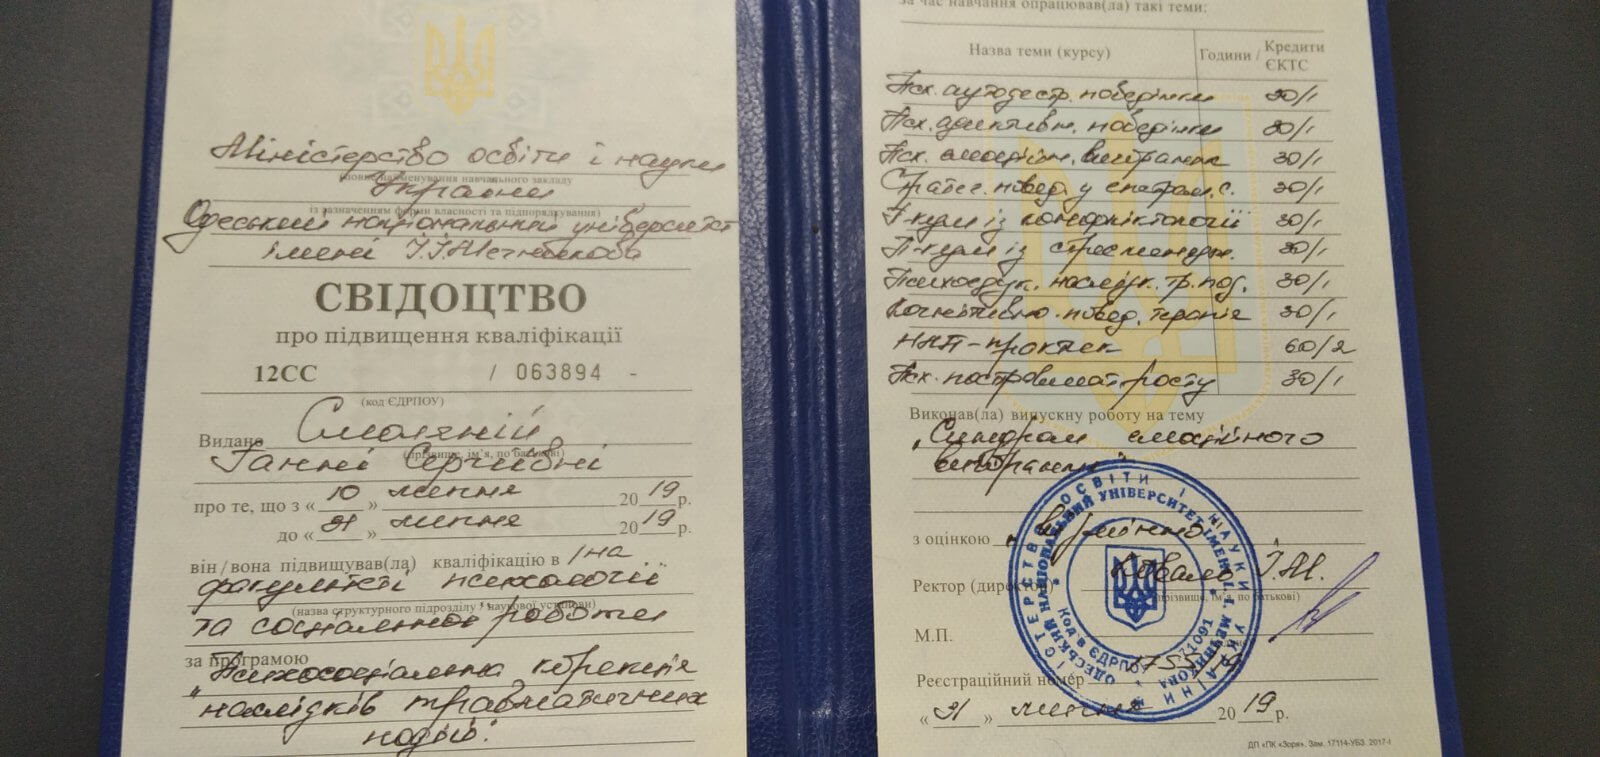 Міністерство освіти і науки
(повне найменування навчального закладу
України
із зазначенням форми власності та підпорядкування)
Одеський національний університет
імені І.І.Мечникова
СВІДОЦТВО
про підвищення кваліфікації
12СС / 063894 -
(код ЄДРПОУ)
Видано Смоляній
(прізвище, ім'я, по батькові)
Ганні Сергіївні
про те, що з « 10 » липня 2019 р.
до « 31 » липня 2019 р.
він/вона підвищував(ла) кваліфікацію в / на
факультеті психології
(назва структурного підрозділу, наукової установи)
та соціальної роботи
за програмою
"Психосоціальна корекція
наслідків травматичних
подій".
за час навчання опрацював(ла) такі теми:
Назва теми (курсу) Години / Кредити ЄКТС
Псх. аутодестр. поведінки 30/1
Псх. адиктивн. поведінки 30/1
Псх. емоційн. вигорання 30/1
Стратег. повед. у 30/1
П-кум із конфліктології 30/1
П-кум із стресменедж. 30/1
Психоедук. наслідк. тр. под. 30/1
Когнітивно-повед. терапія 30/1
НЛП-практик 60/2
Псх. посттравмат. росту 30/1
Виконав(ла) випускну роботу на тему
"Синдром емоційного
вигорання"
з оцінкою "відмінно"
Ректор (директор) Коваль І.М.
(прізвище, ім'я, по батькові)
М.П.
Реєстраційний номер 1755/19
« 31 » липня 2019 р.
ДП «ПК «Зоря». Зам. 17114-УБЗ. 2017-І
МІНІСТЕРСТВО ОСВІТИ І НАУКИ УКРАЇНИ
ОДЕСЬКИЙ НАЦІОНАЛЬНИЙ УНІВЕРСИТЕТ ІМЕНІ І. І. МЕЧНИКОВА
Код в ЄДРПОУ